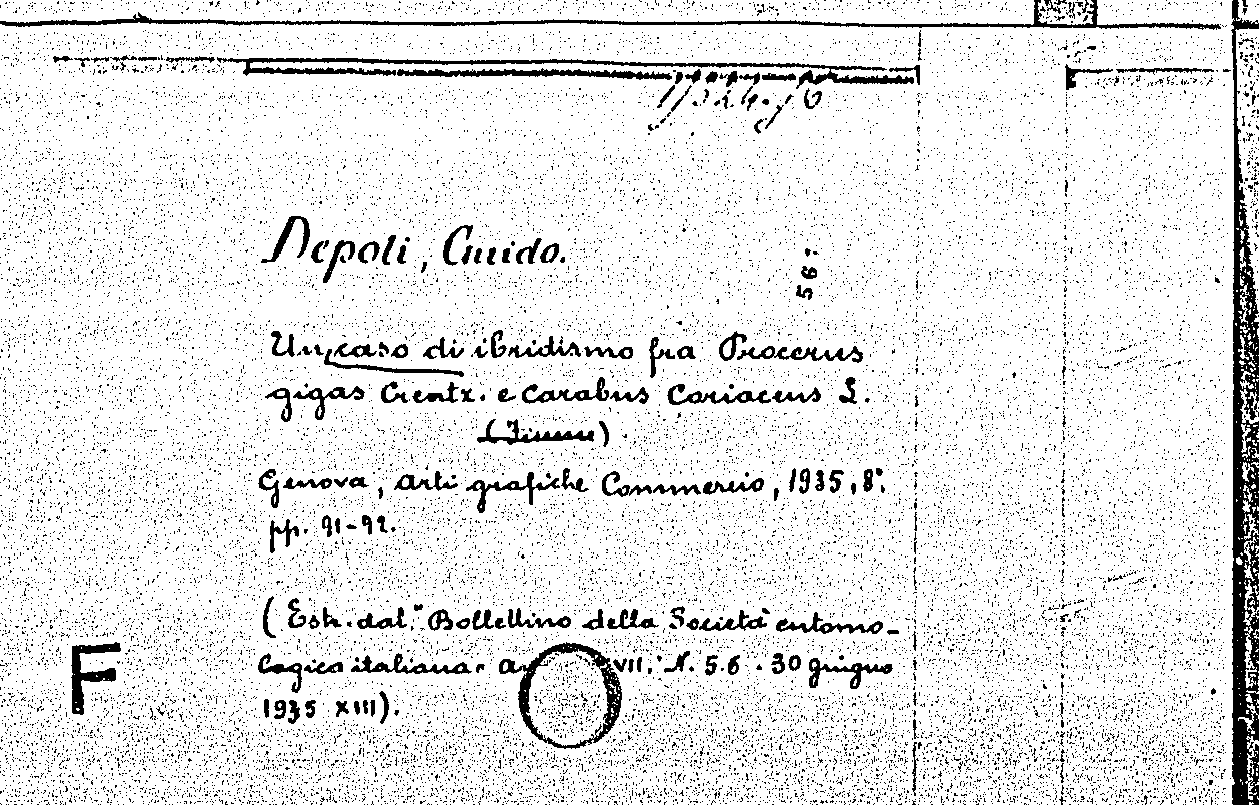 Depoli, Guido.
56
Un caso di ibridismo fra Procerus
gigas Creutz. e Carabus Coriaceus L.
(Fiume)
Genova, Arti grafiche Commercio, 1935, 8°.
pp. 91-92.
(Estr. dal "Bollettino della Società entomo-
logica italiana" VII. N. 5.6 . 30 giugno
1935 XIII).
F